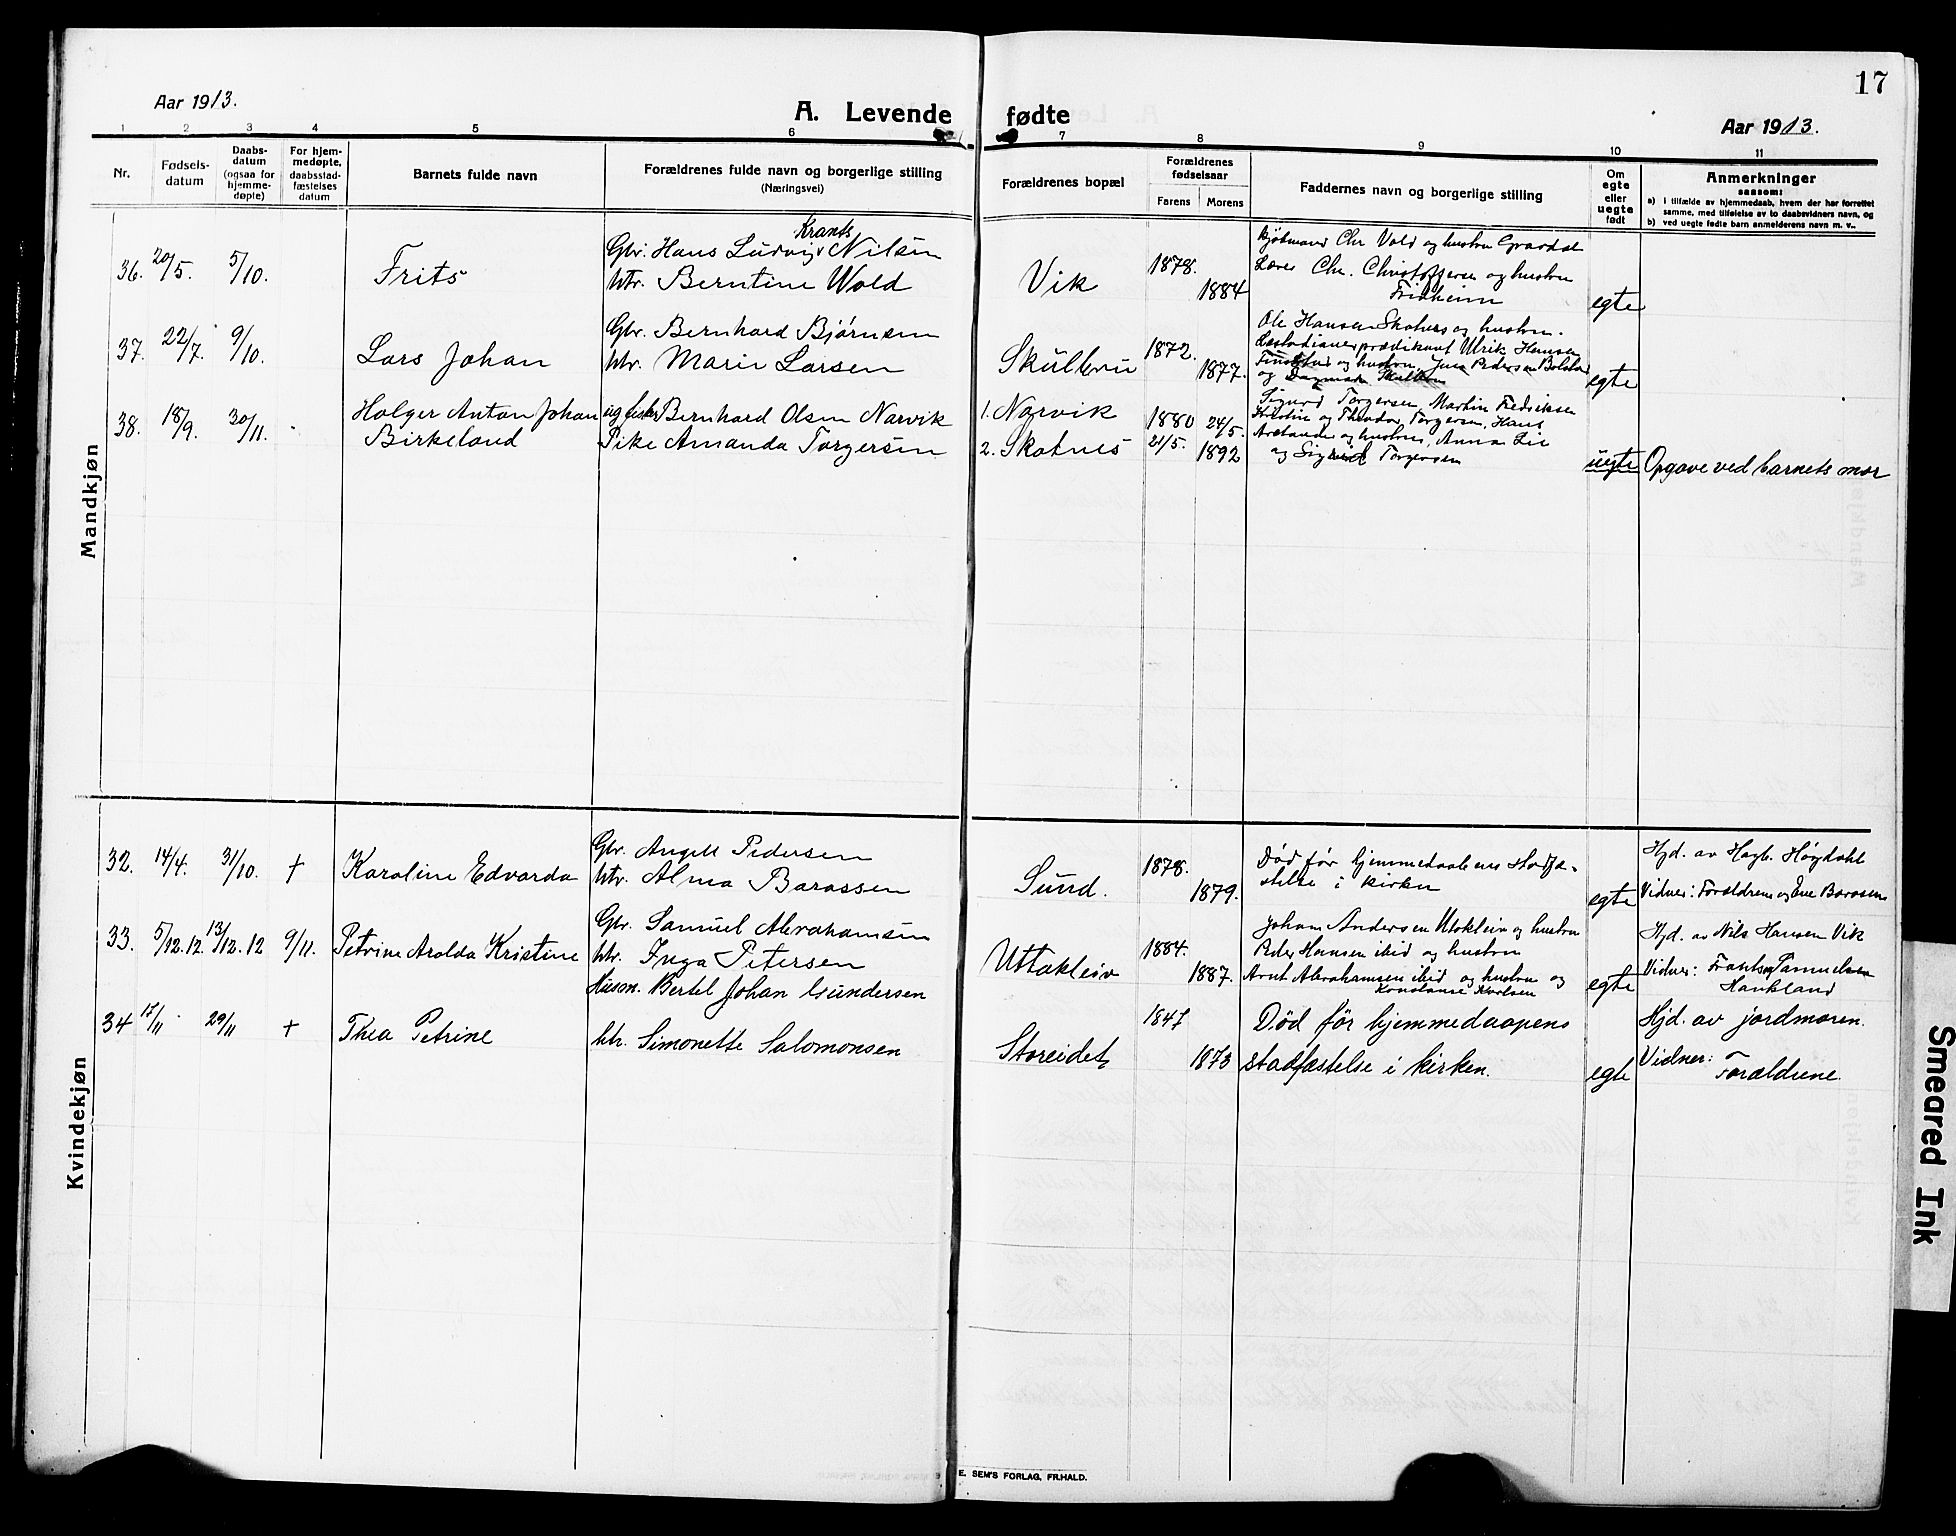 17
Aar 1913.
A. Levende fødte
Aar 1913.
1 2 3 4 5 6 7 8 9 10 11
Nr.
Fødsels-
datum
Daabs-
datum
(ogsaa for
hjemme-
døpte)
For hjem-
medøpte,
daabsstad-
fæstelses
datum
Barnets fulde navn
Forældrenes fulde navn og borgerlige stilling
(Næringsvei)
Forældrenes bopæl
Forældrenes
fødselsaar
Farens Morens
Faddernes navn og borgerlige stilling
Om
egte
eller
uegte
født
Anmerkninger
saasom:
a) i tilfælde av hjemmedaab, hvem der har forrettet
samme, med tilføielse av to daabsvidners navn, og
b) ved uegte fødte barn anmelderens navn m. v.
Mandkjøn
36. 20/5. 5/10. Frits
Krants
Gbr. Hans Ludvig Nilsen
htr. Berntine Wold
Vik
1878.
1884
Kjøbmand Chr Vold og hustru Gravdal
Lærer Chr. Christoffersen og hustru
Fridheim
egte
37. 22/7. 9/10. Lars Johan
Gbr. Bernhard Bjørnsen
htr. Marie Larsen
Skulbru
1872.
1877.
Ole Hansen Skotnes og hustru.
Læstadianerprædikant Ulrik Hansen
og hustru, Jens Pedersen Bolstad
og Dagmar Skulbru
egte
38. 18/9. 30/11.
Holger Anton Johan
Birkeland
ug fisker Bernhard Olsen Narvik
Pike Amanda Torgersen
1. Narvik
2. Skotnes
1880 24/5.
21/5. 1892
Sigurd Torgersen, Martin Fredriksen
Kristin og Theodor Torgersen, Hans
og hustru, Anna Lie
og Sigrid Torgersen
uegte
Opgave ved barnets mor
Kvindekjøn
32. 14/4. 31/10. + Karoline Edvarda
Gbr. Angell Pedersen
htr. Alma Barassen
Sund.
1878.
1879.
Død før hjemmedaabens stadfæ-
stelse i kirken
egte
Hjd. av Hagb. Høgdahl
Vidner: Forældrene og Ene Barosen
33. 5/12.12. 13/12.12 9/11. Petrine Arolda Kristine
Gbr. Samuel Abrahamsen
htr. Inga Petersen
Uttakleiv
1884.
1887.
Johan Andersen Utakleiv og hustru
Peder Hansen ibid og hustru
Arnt Abrahamsen ibid og hustru og
Konstanse Karlsen
egte
Hjd. av Nils Hansen Vik
Vidner:
Haukland
34 17/11 29/11 + Thea Petrine
Husm. Bertel Johan Gundersen
htr. Simonette Salomonsen
Storeidet
1847
1873
Død før hjemmedaapens
stadfæstelse i kirken.
egte
Hjd. av jordmoren.
Vidner:
Forældrene.
E. SEM'S FORLAG, FR.HALD.
Smeared Ink